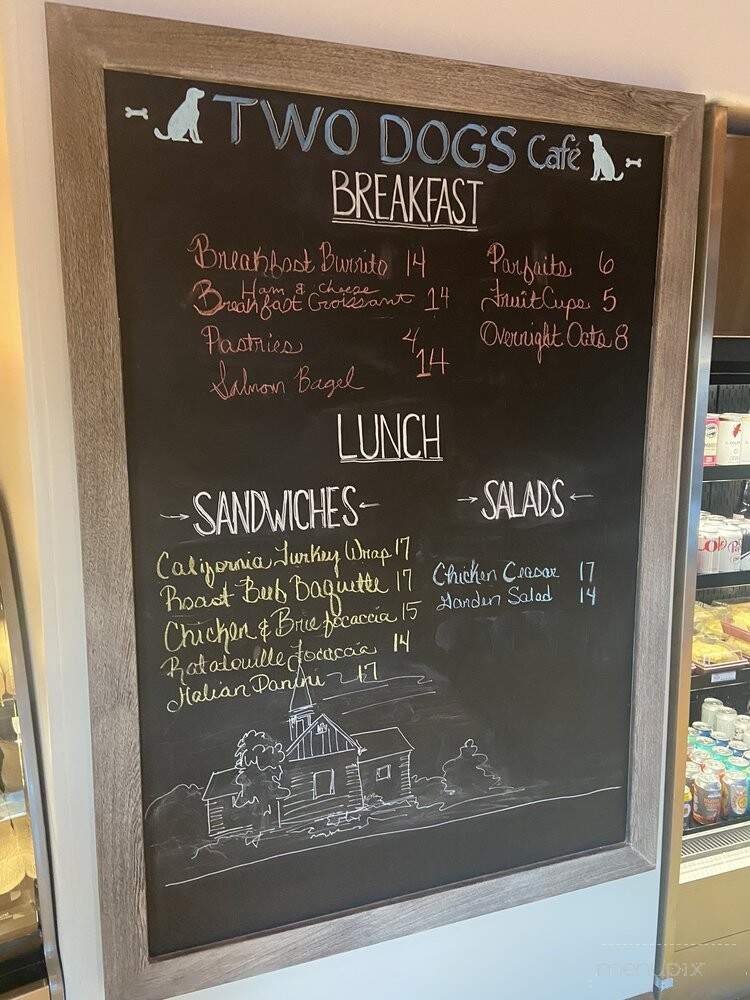 TWO DOGS Café
BREAKFAST
Breakfast Burrito 14
Ham & Cheese
Breakfast Croissant 14
Pastries 4
Salmon Bagel 14
Parfaits 6
Fruit Cups 5
Overnight Oats 8
LUNCH
SANDWICHES
California Turkey Wrap 17
Roast Beef Baguette 17
Chicken & Brie focaccia 15
Ratatouille Focaccia 14
Italian Panini 17
SALADS
Chicken Ceasar 17
Garden Salad 14
menupix